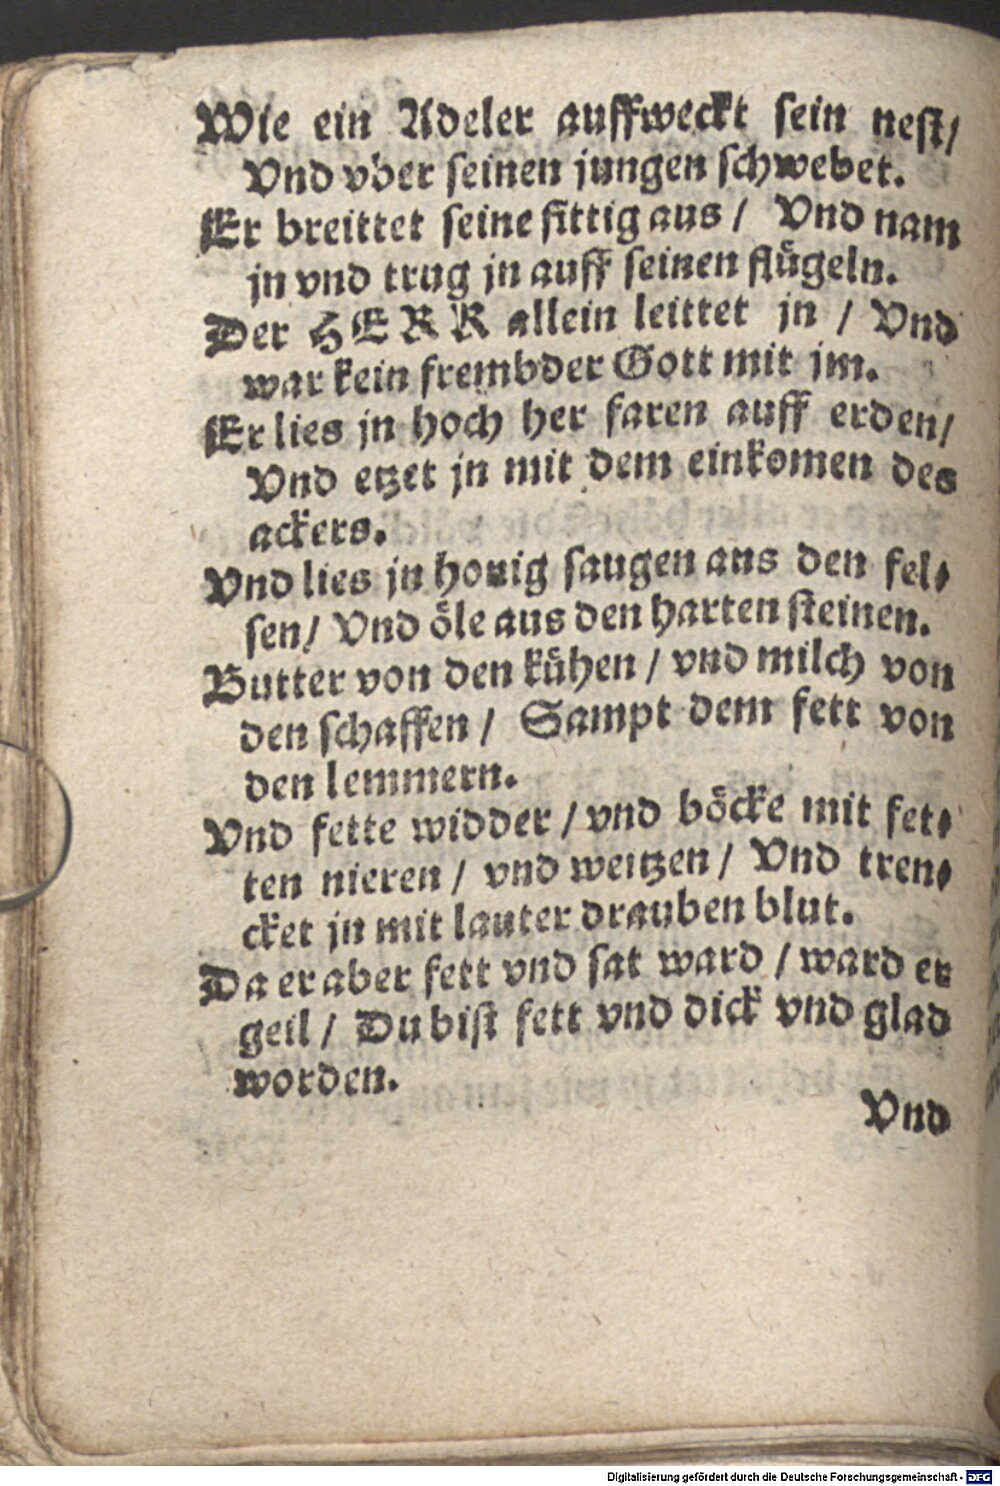 Wie ein Adeler auffweckt sein nest/
Vnd vber seinen jungen schwebet.
Er breittet seine fittig aus / Vnd nam
jn vnd trug jn auff seinen flügeln.
Der HERR allein leittet jn / Vnd
war kein frembder Gott mit jm.
Er lies jn hoch her faren auff erden/
Vnd etzet jn mit dem einkomen des
ackers.
Vnd lies jn honig saugen aus den fel⸗
sen/ Vnd öle aus den harten steinen.
Butter von den kühen / vnd milch von
den schaffen / Sampt dem fett von
den lemmern.
Vnd fette widder / vnd böcke mit fet⸗
ten nieren / vnd weitzen / Vnd tren⸗
cket jn mit lauter drauben blut.
Da er aber fett vnd sat ward / ward er
geil / Du bist fett vnd dick vnd glad
worden.
Vnd
Digitalisierung gefördert durch die Deutsche Forschungsgemeinschaft - DFG